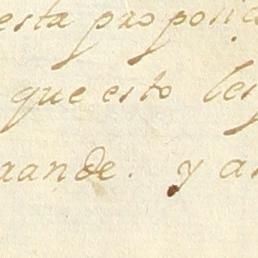 esta proposic
que esto les
aande. y a